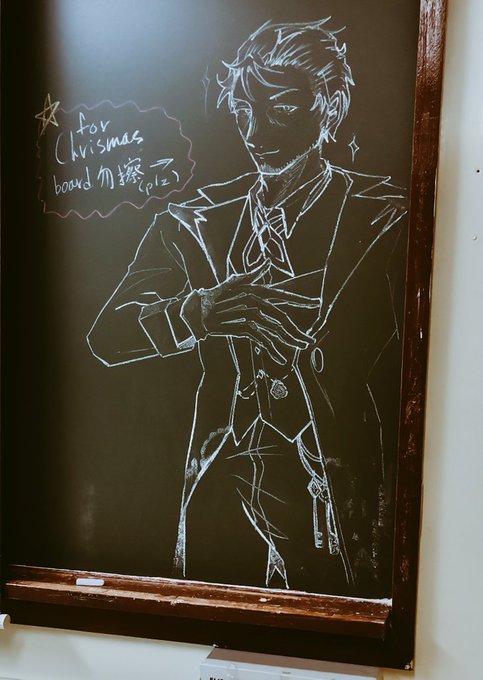 for
Chrismas
board 勿擦→
(plz)